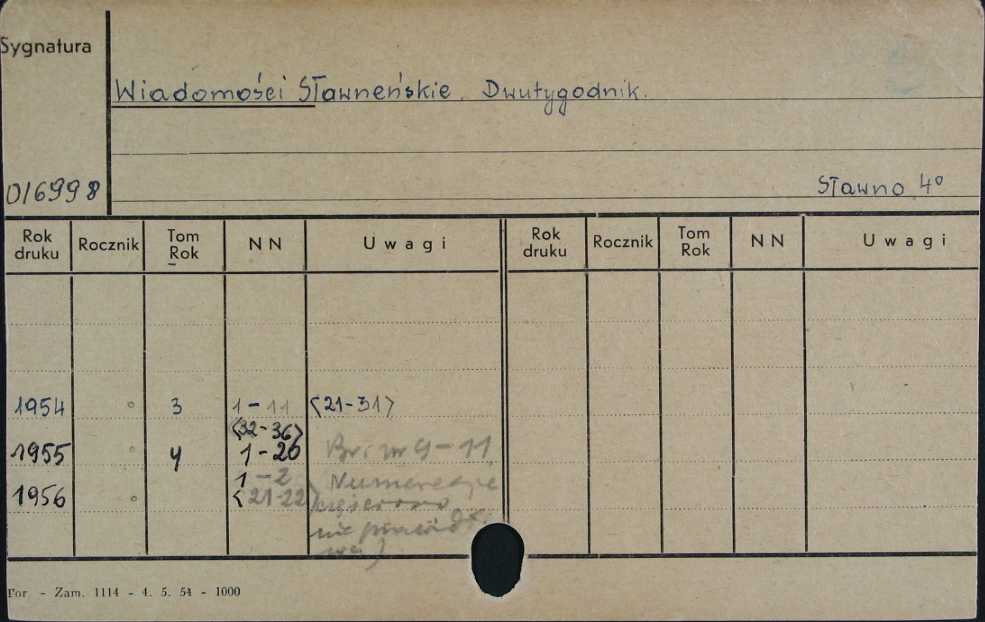 Sygnatura
Wiadomości Sławneńskie. Dwutygodnik.
0/6998
Sławno 4°
Rok druku Rocznik Tom Rok NN Uwagi Rok druku Rocznik Tom Rok NN Uwagi
1954 3 1-11 <21-31>
<32-36>
1955 4 1-20 Br. nr 9-11
1-2 Numeracja
1956 <21-22>
częściowo
nie
Tor - Zam. 1114 - 4. 5. 54 - 1000